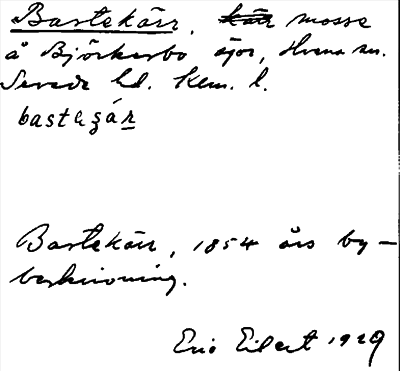 Bastekärr, kärr mosse
å Björkerbo ägor, Hvena sn.
Sevede hd. Kalm. l.
bastezár
Bastekärr, 1854 års by–
beskrivning.
Eric Eilert 1929